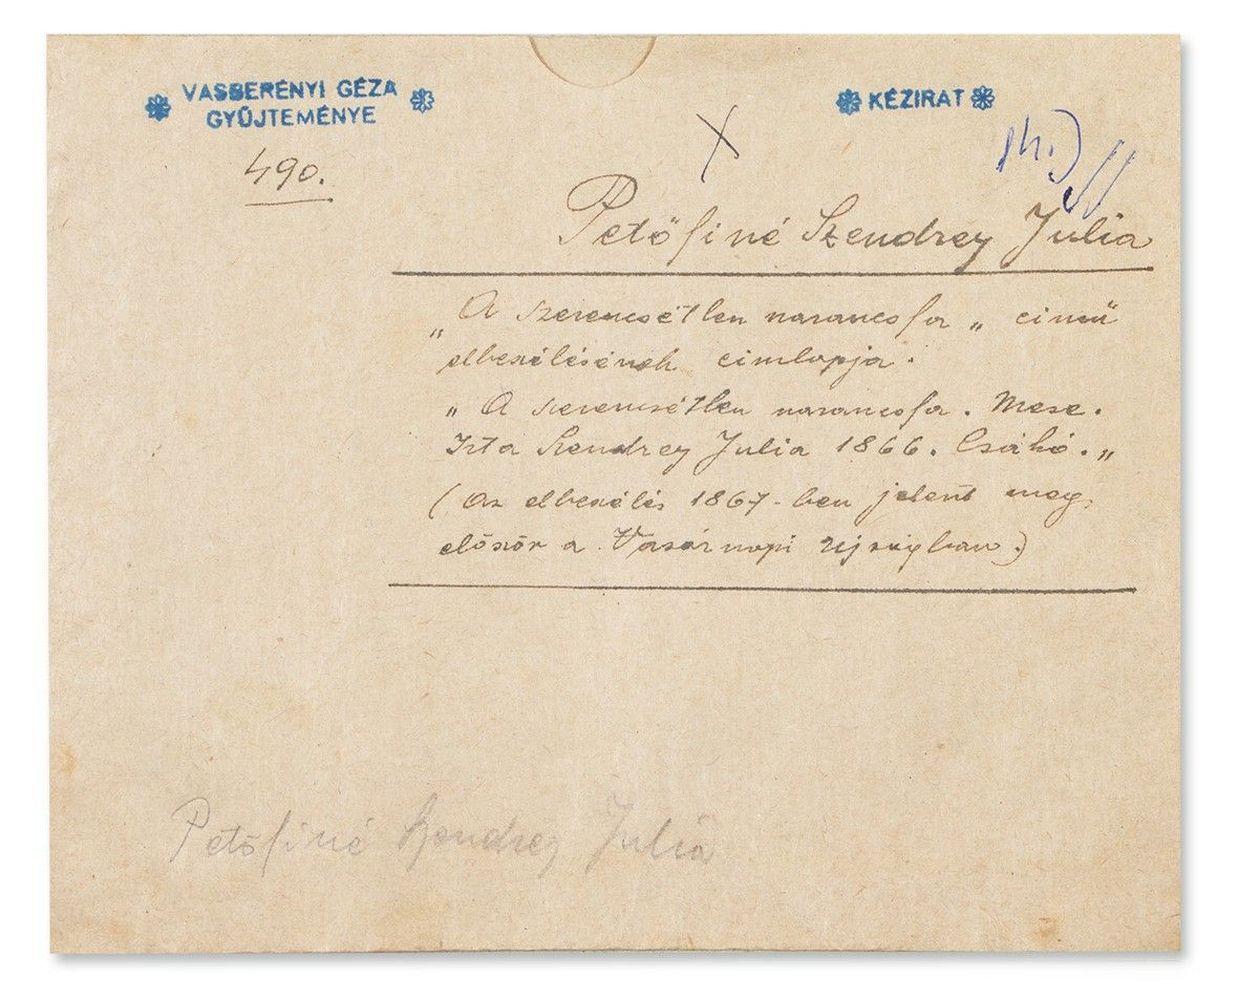 VASBERÉNYI GÉZA
GYŰJTEMÉNYE
490.
KÉZIRAT
Petőfiné Szendrey Julia
„A szerencsétlen narancsfa „ cimű
elbeszélésének cimlapja.
„ A szerencsétlen narancsfa. Mese.
Irta Szendrey Julia 1866. Csákó. „
(Az elbeszélés 1867-ben jelent meg
először a Vasárnapi Ujságban.)
Petőfiné Szendrey Julia